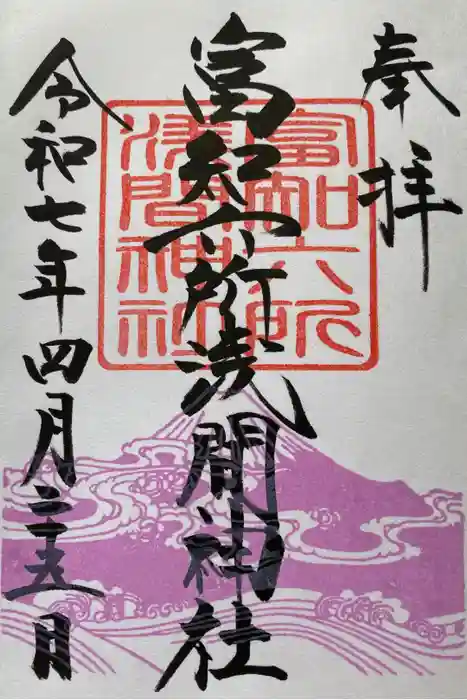 奉拝
富知六所浅間神社
令和七年四月二十五日
富知六所
淺間神社